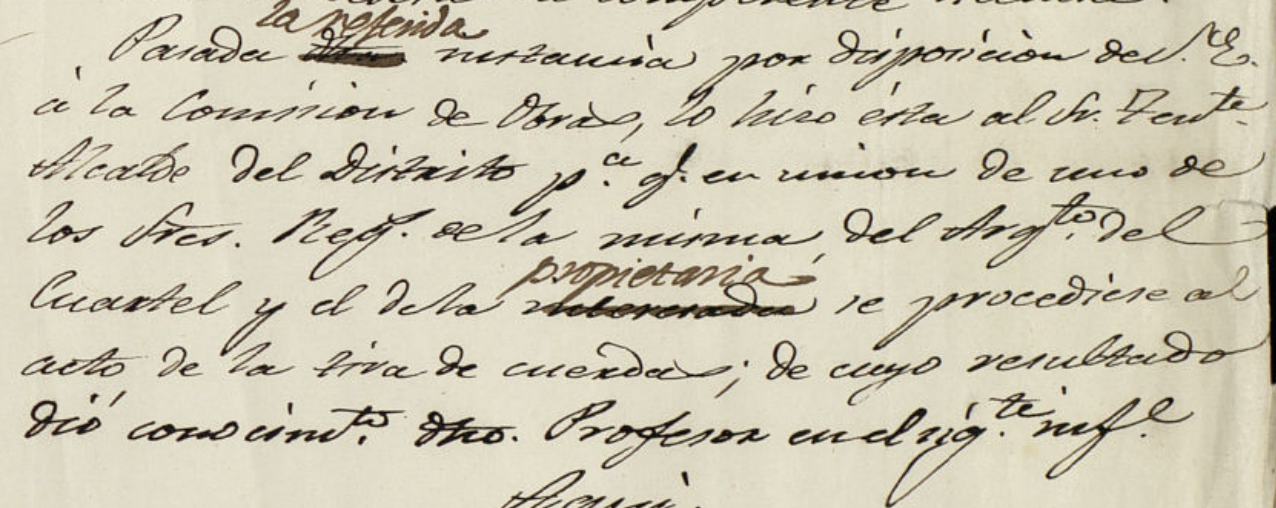 la referida
Pasada dha instancia por disposicion de V. E.
á la Comision de Obras, lo hizo ésta al Sr. Tente.
Alcalde del Distrito pa. q. en union de uno de
los Sres. Reg. de la misma del Argto. del
propietaria
Cuartel y el de la interesada se procediese al
acto de la tira de cuerdas; de cuyo resultado
dió conocimto. dho. Profesor en el sigte. inf.e
Aqui